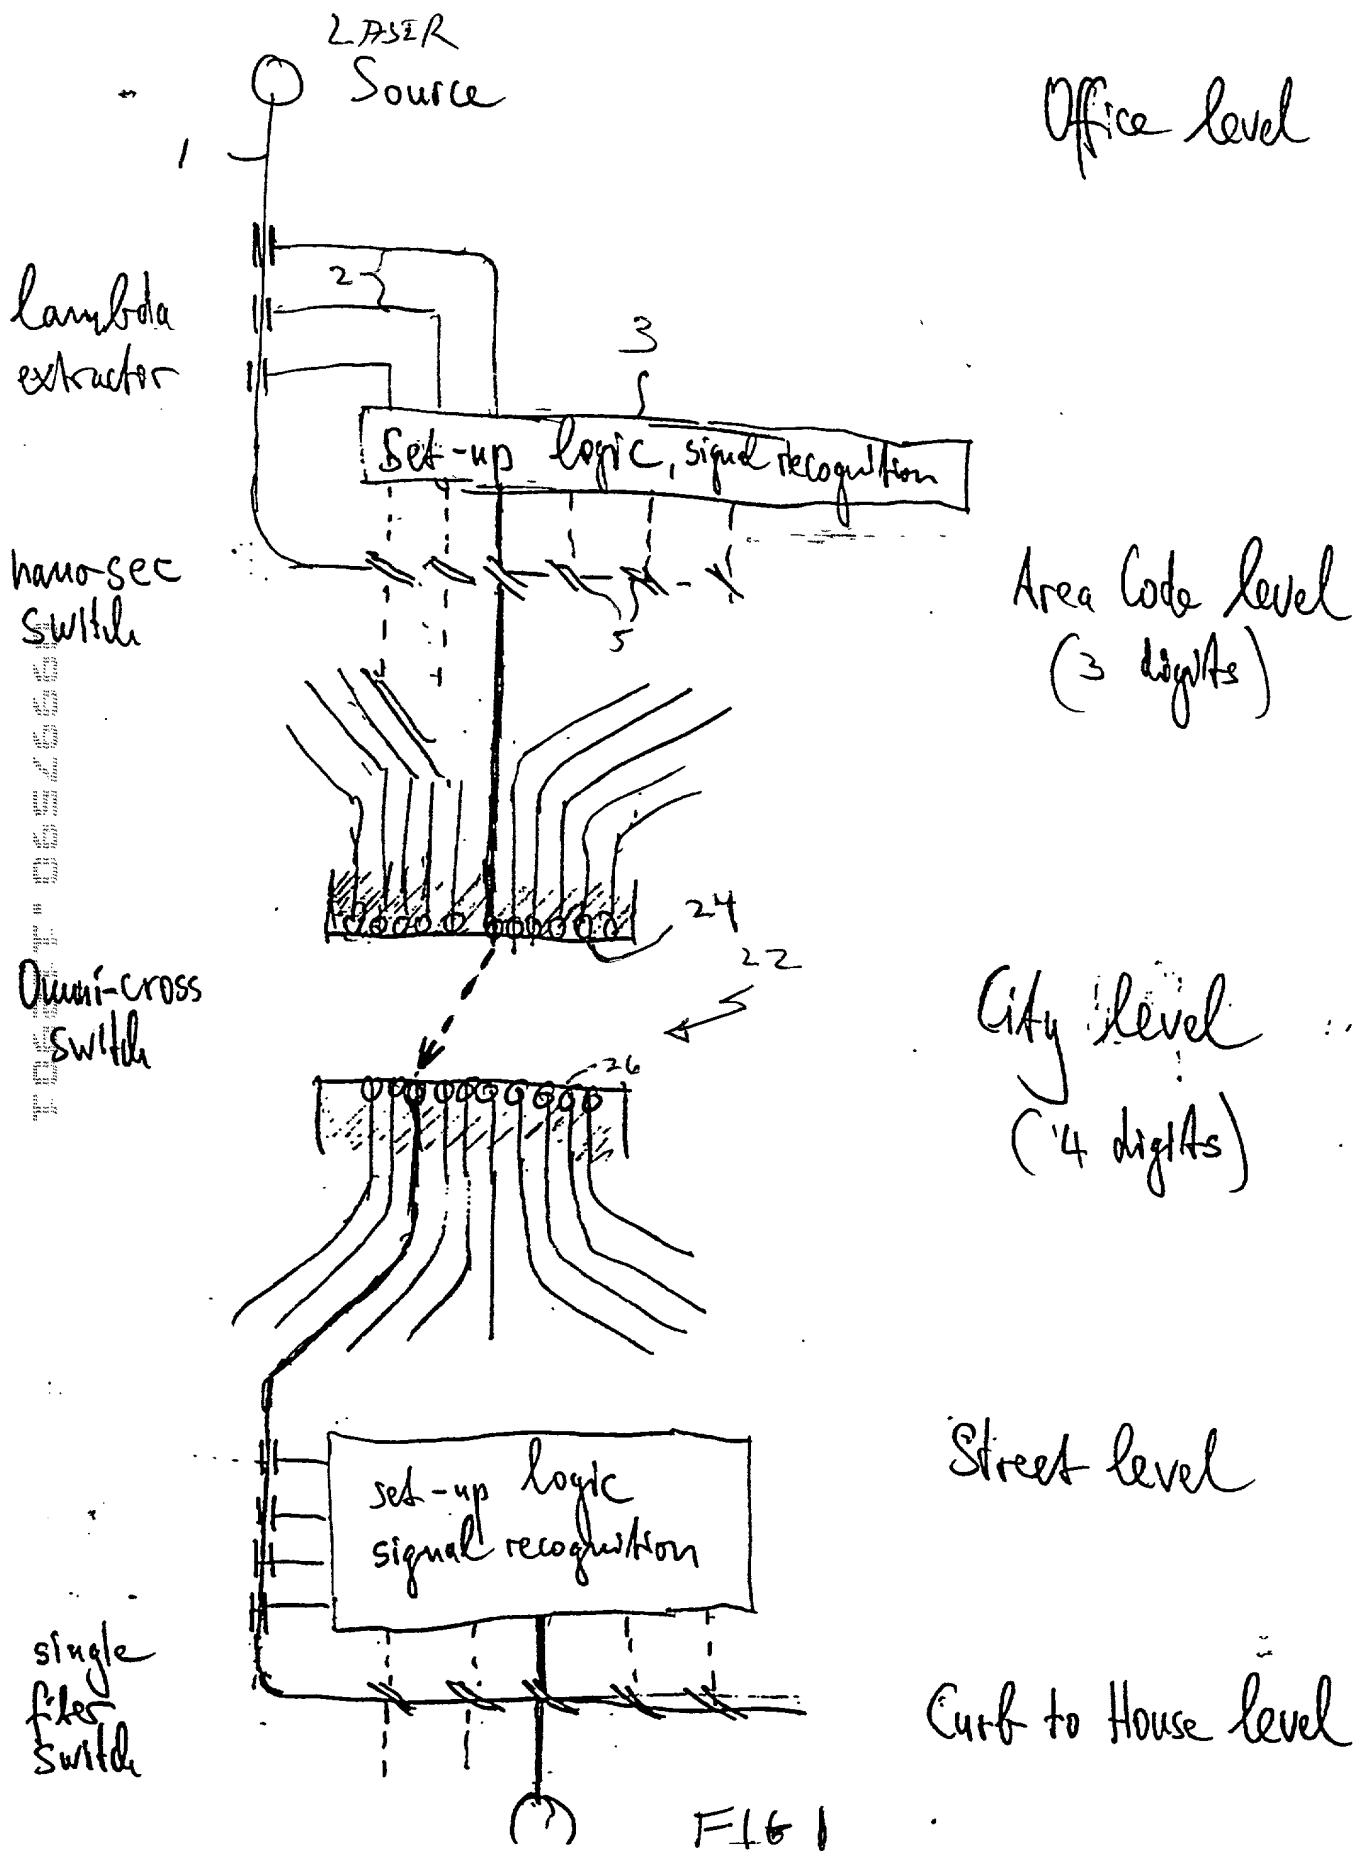 LASER
Source
Office level
1
2
lambda
extractor
3
Set-up logic, signal recognition
nano-sec
switch
5
Area Code level
(3 digits)
24
22
Omni-cross
switch
City level
26
(4 digits)
Street level
set-up logic
signal recognition
single
fiber
switch
Curb to House level
FIG 1